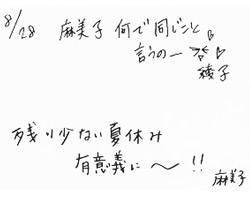 8/28 麻美子 何で同じこと
言うのー
綾子
残り少ない夏休み
有意義に〜!!
麻美子